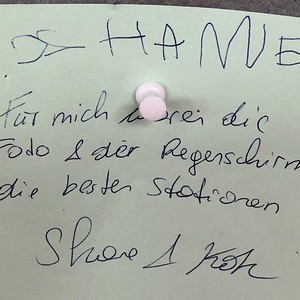 HANNE
Für mich waren die
Foto & der Regenschirm
die besten Stationen